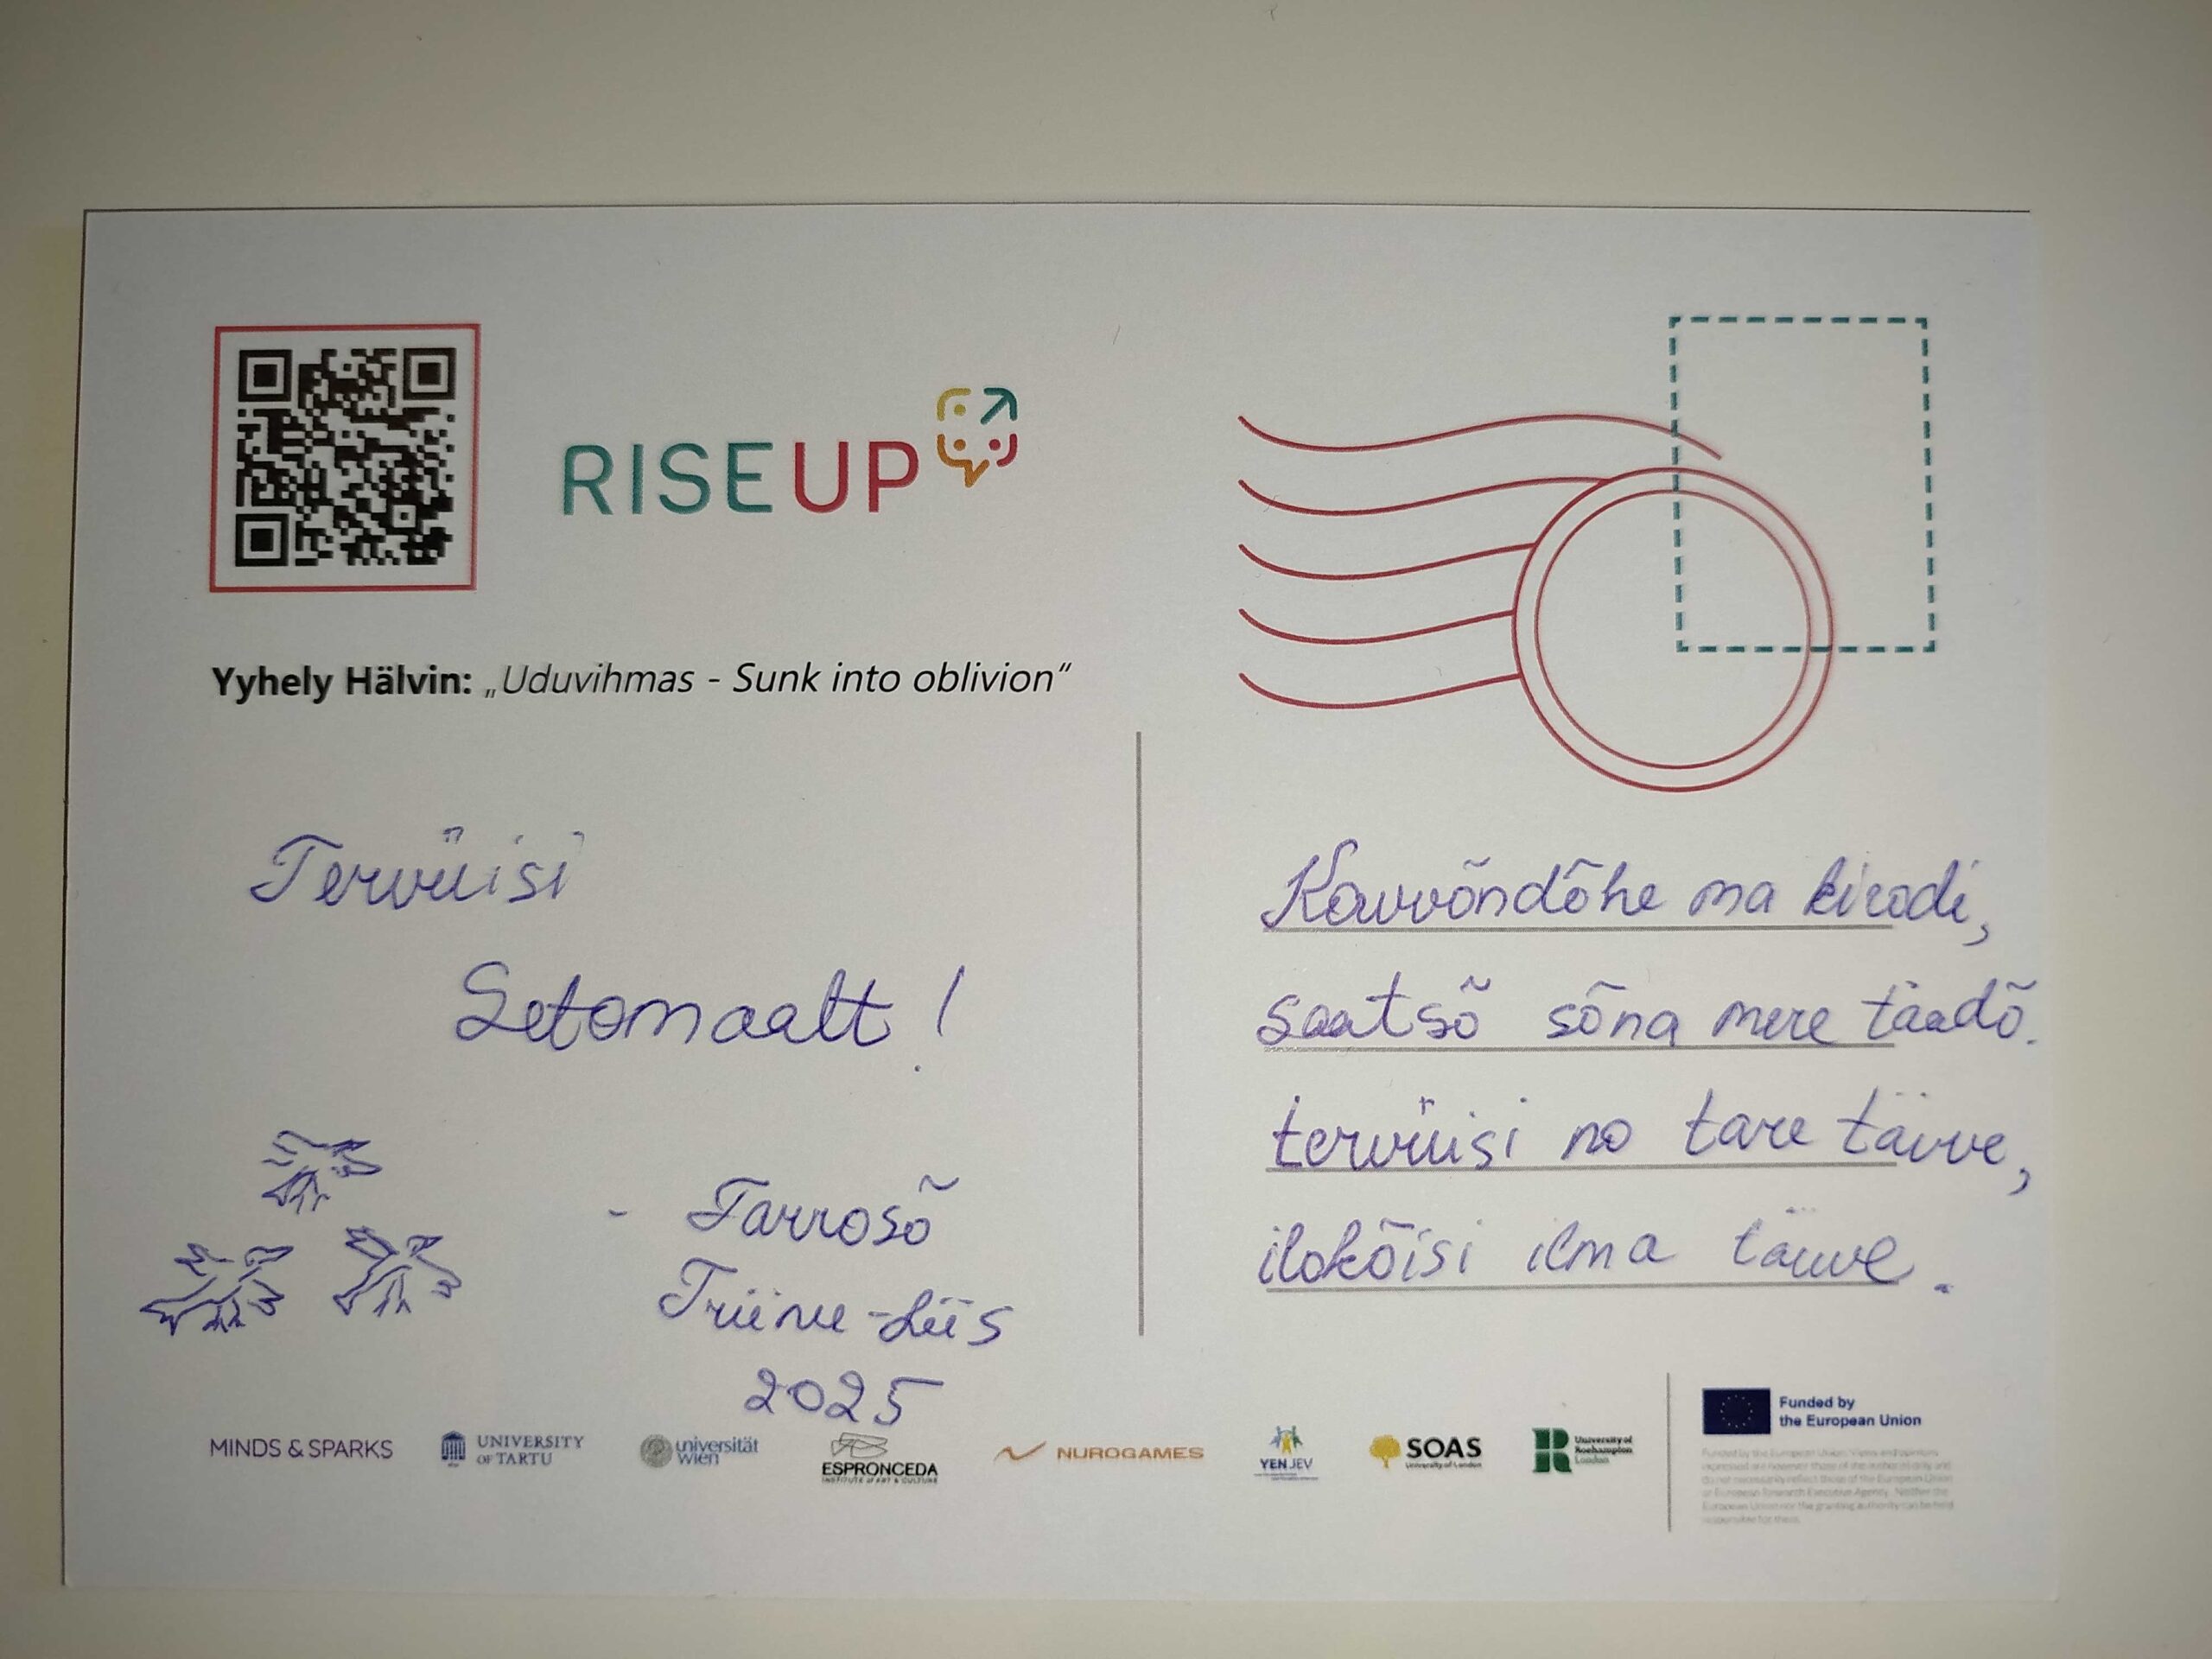 RISEUP
Yyhely Hälvin: „Uduvihmas - Sunk into oblivion“
Tervüisi
Setomaalt!
- Tarrosõ
Triinu-Liis
2025
Kavvõndõhe ma kirodi,
saatsõ sõna mere taadõ.
tervüisi no tare täwve,
ilokõisi ilma täwve.
MINDS & SPARKS
UNIVERSITY
OF TARTU
universität
wien
ESPRONCEDA
INSTITUTE OF ART & CULTURE
NUROGAMES
YENJEV
SOAS
University of London
University of
Roehampton
London
Funded by
the European Union
Funded by the European Union. Views and opinions
expressed are however those of the author(s) only and
do not necessarily reflect those of the European Union
or European Research Executive Agency. Neither the
European Union nor the granting authority can be held
responsible for them.